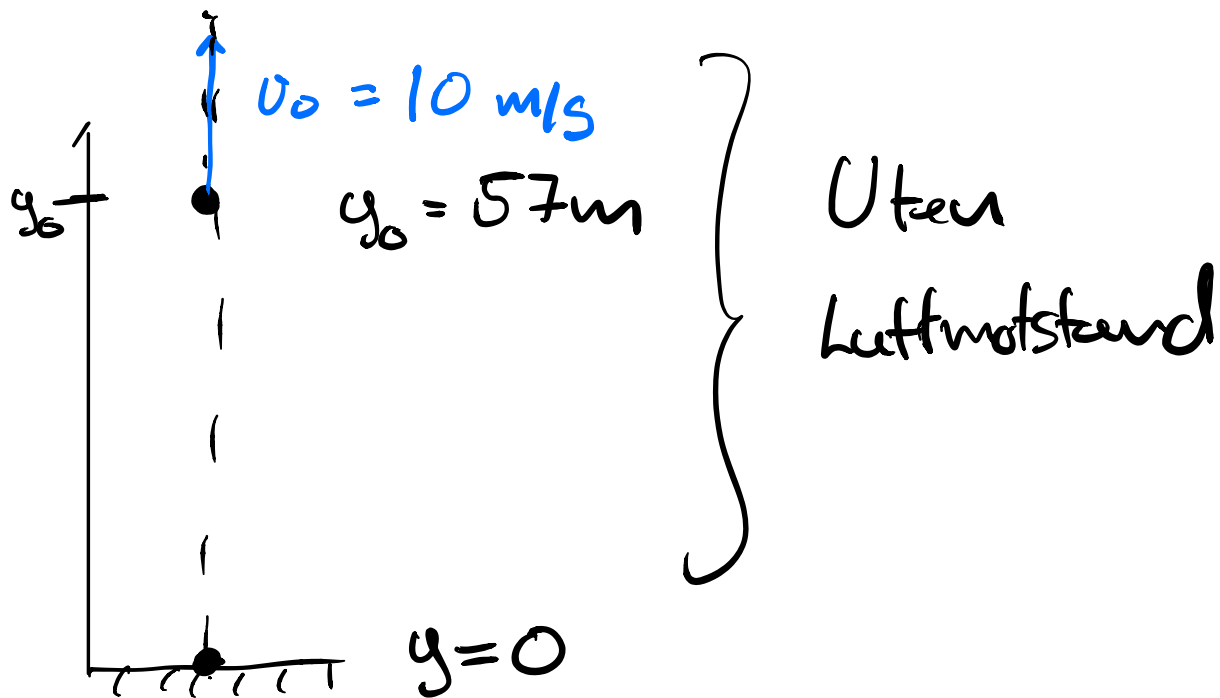 v₀ = 10 m/s
y₀
y₀ = 57m
Uten
Luftmotstand
y=0